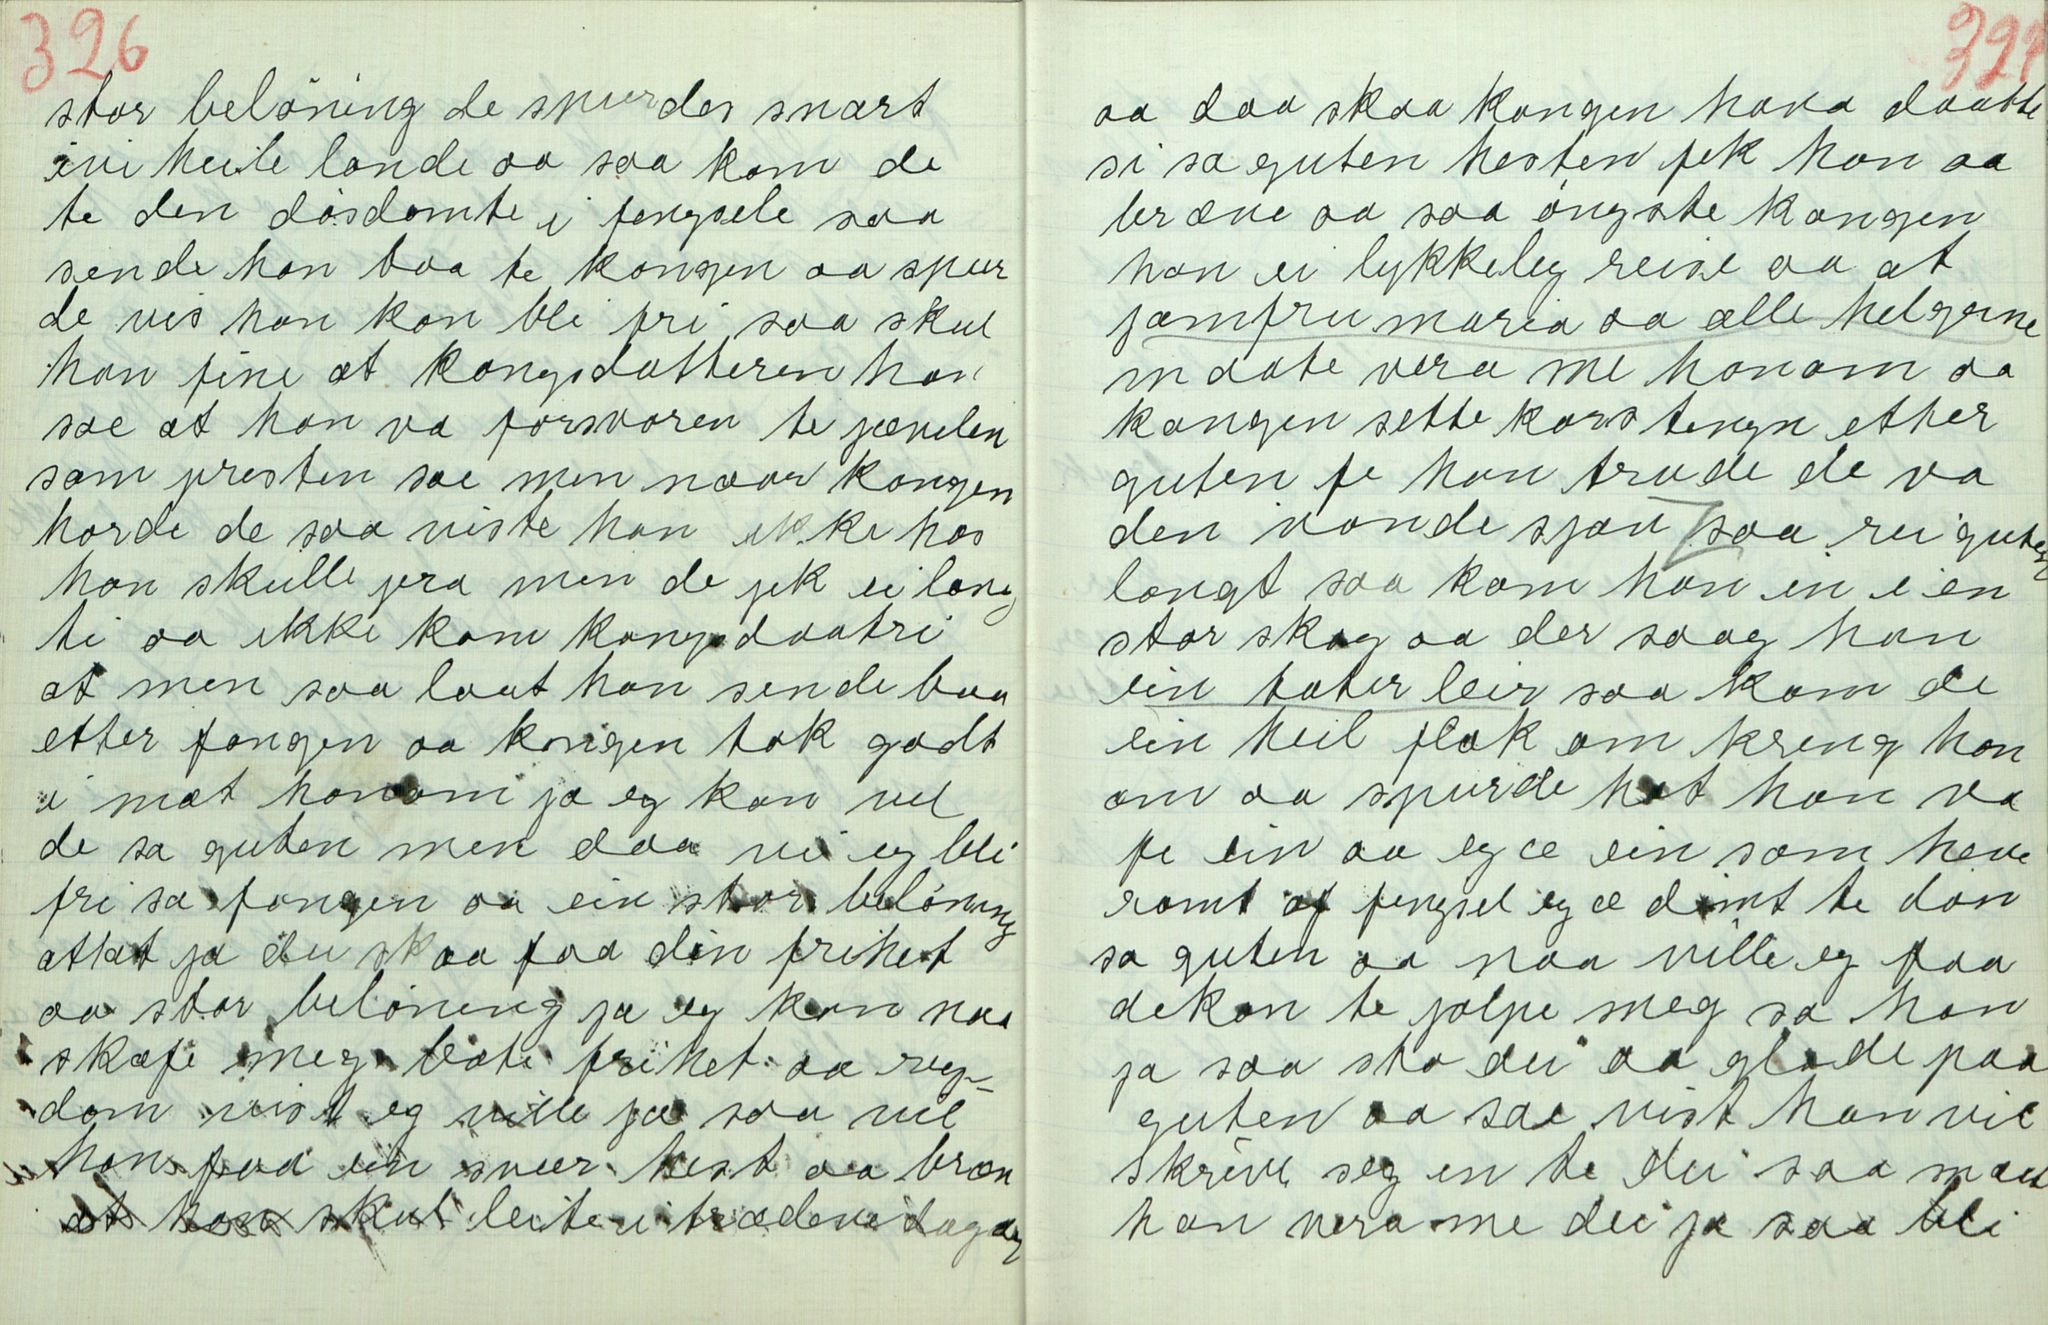 326
stor belöning de spurdes snart
ivi heile lande aa saa kom de
te den dösdömte i fengsele saa
sende han boa te kongen aa spur
de vis han kan bli fri saa skul
han fine at kongsdatteren han
sae at han va forsvoren te jævelen
som presten sae men naar kongen
horde de saa viste han ikke hos
han skulle jera men de jek ei lang
ti aa ikke kom kongsdaatri
at men saa laat han sende boa
etter fangen aa kongen tok godt
i mot honom ja eg kan vel
de sa guten men daa vi eg bli
fri sa fangen aa ein stor belöning
attæt ja du skaa faa din frihet
aa stor belöning ja eg kan naa
skafe meg bate frihet aa reg-
dom vist eg ville ja saa vil
han faa ein svær hest aa bræn
at han skul leite i trædeve dagar
327
aa daa skaa kongen hava daatte
si sa guten hesten fek han aa
bræne aa saa öngste kongen
han ei lykkeleg reise aa at
jomfru maria aa alle helgerne
maate vera me honom aa
kongen sette kors tengn etter
guten fe han trude de va
den vonde sjøv saa rei guten
langt saa kom han in i en
stor skog aa der saag han
ein tater leir saa kom de
ein heil flok om kreng hon
om aa spurde hot han va
fe ein aa eg æ ein som heve
römt af fengsel eg æ dömt te dön
sa guten aa naa ville eg faa
dekan te jølpe meg sa han
ja saa sto dei aa glode paa
guten aa sae vist han vil
skrive seg in te dei saa maat
han vera me dei ja saa bli